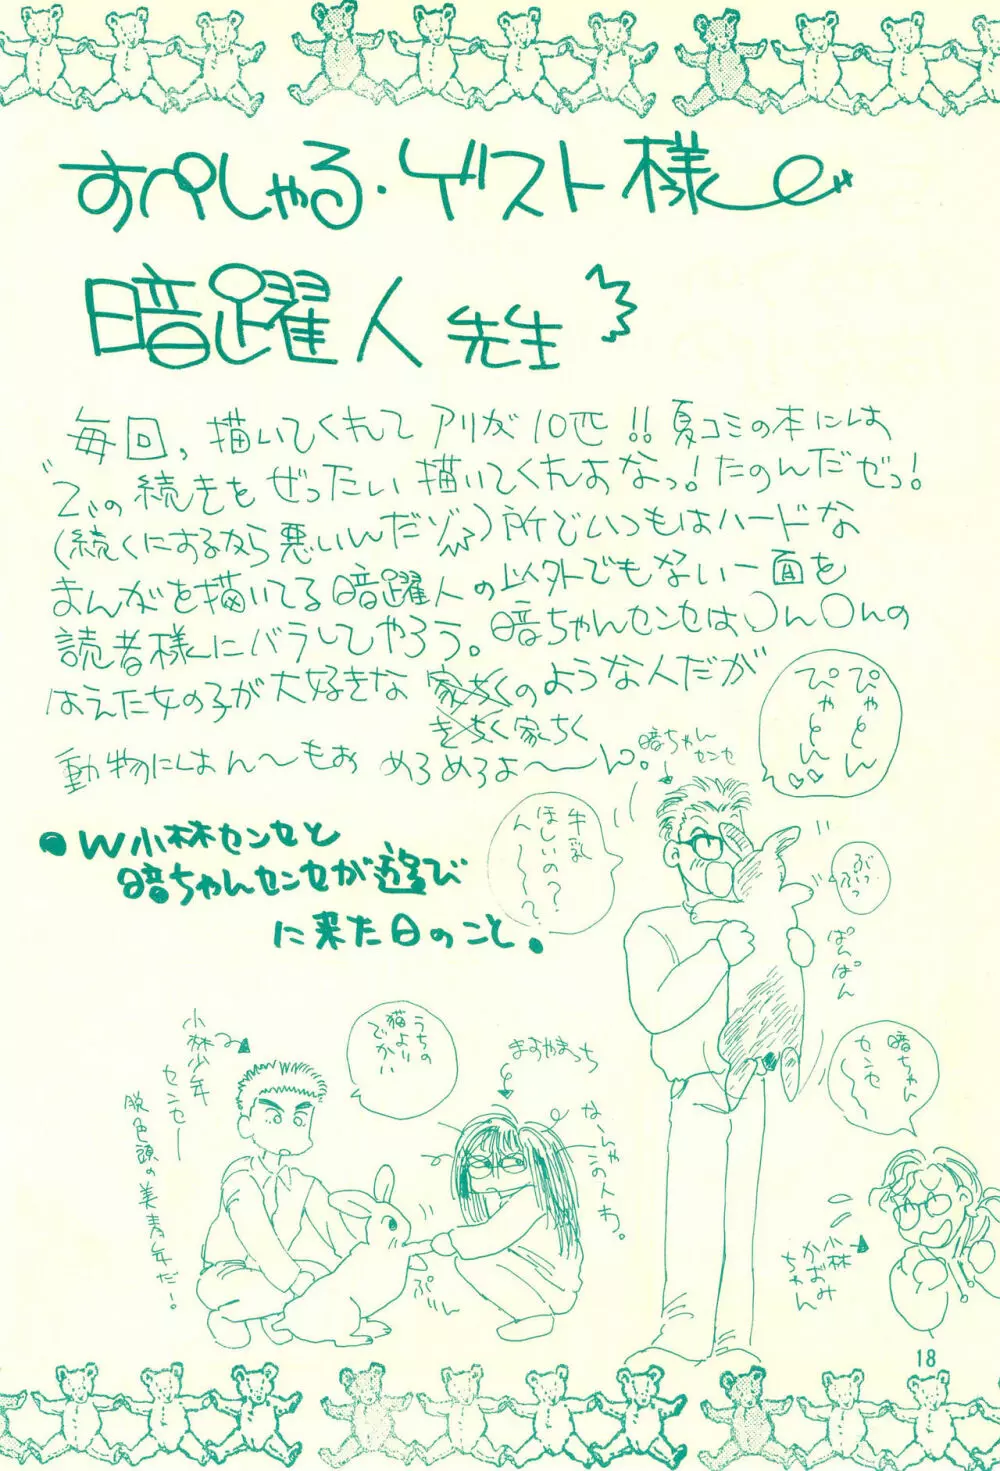 すぺしゃる・ゲスト様
暗躍人 先生
毎回，描いてくれて アリが10匹!!夏コミの本には
この続きをぜったい描いてくれよなっ!たのんだゼっ!
(続くにするなら悪いんだゾ)所でいつもはハードな
まんがを描いてる暗躍人の以外でもない一面を
読者様にバラしてやろう。暗ちゃんセンセは〇ん〇んの
はえた女の子が大好きな 家ちくのような人だが
きちく家ちく
動物にはん〜もお めろめろよ〜ん。
暗ちゃんセンセ
ぴゃとん ぴゃとん♡♡
●W小林センセと
暗ちゃんセンセが遊び
に来た日のこと。
牛乳ほしいの?ん〜?
ぶいっ ぶっ
ぱんぱん
暗ちゃんセンセ〜
小林かおみちゃん
うちの猫よりでかい
まるやまっち
な〜んやこの人わ。
小林少年センセー
脱色頭の美青年だ!
ぷにん
18